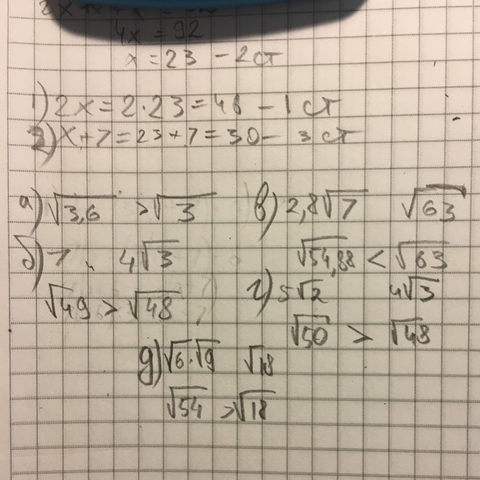 4x = 92
x = 23 - 2 ст
1) 2x = 2·23 = 46 - 1 ст
2) x+7 = 23+7 = 30 - 3 ст
а) √3,6 > √3
б) 7 4√3
√49 > √48
в) 2,8√7 √63
√54,88 < √63
г) 5√2 4√3
√50 > √48
д) √6·√9 √18
√54 > √18